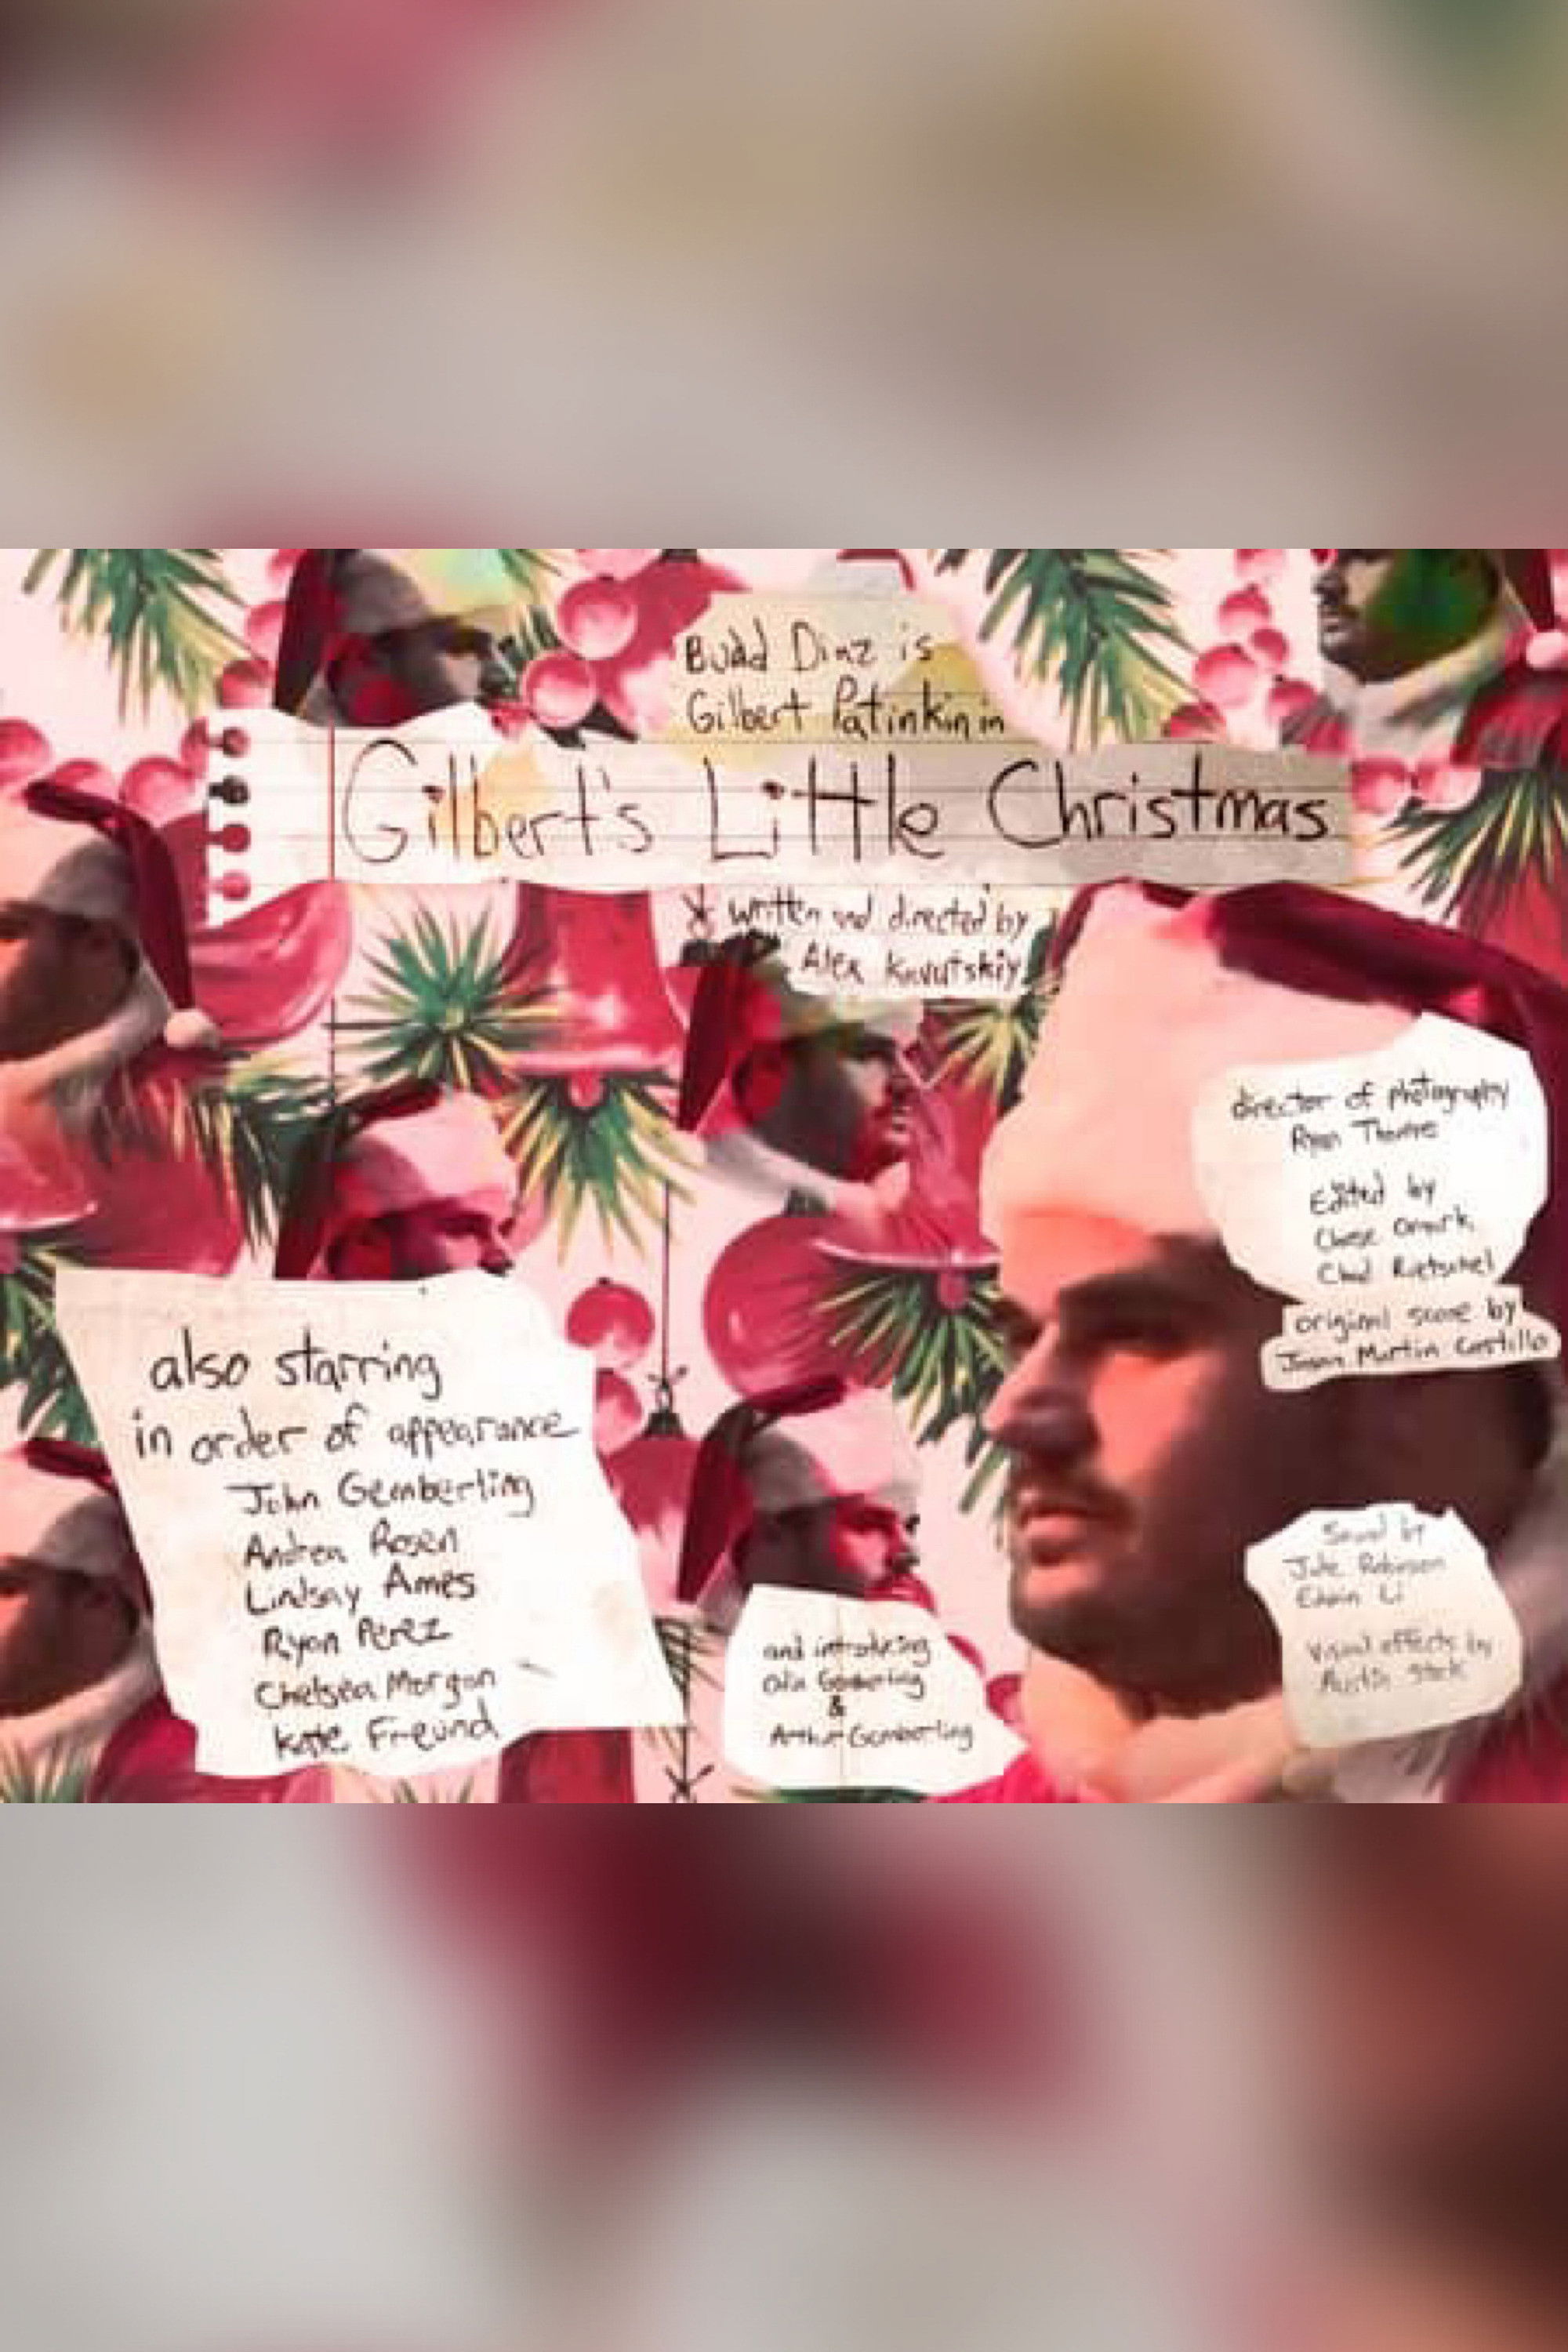 Budd Diaz is
Gilbert Patinkin in
Gilbert's Little Christmas
written and directed by
Alex Kavutskiy
director of photography
Ryan Thomas
Edited by
Chase Ornark,
Chad Rietschel
original score by
Jason Martin Castillo
also starring
in order of appearance
John Gemberling
Andrea Rosen
Lindsay Ames
Ryan Perez
Chelsea Morgan
Kate Freund
and introducing
Gemberling
&
Arthur Gemberling
Sound by
Robinson
Edwin Li
visual effects by
Austin